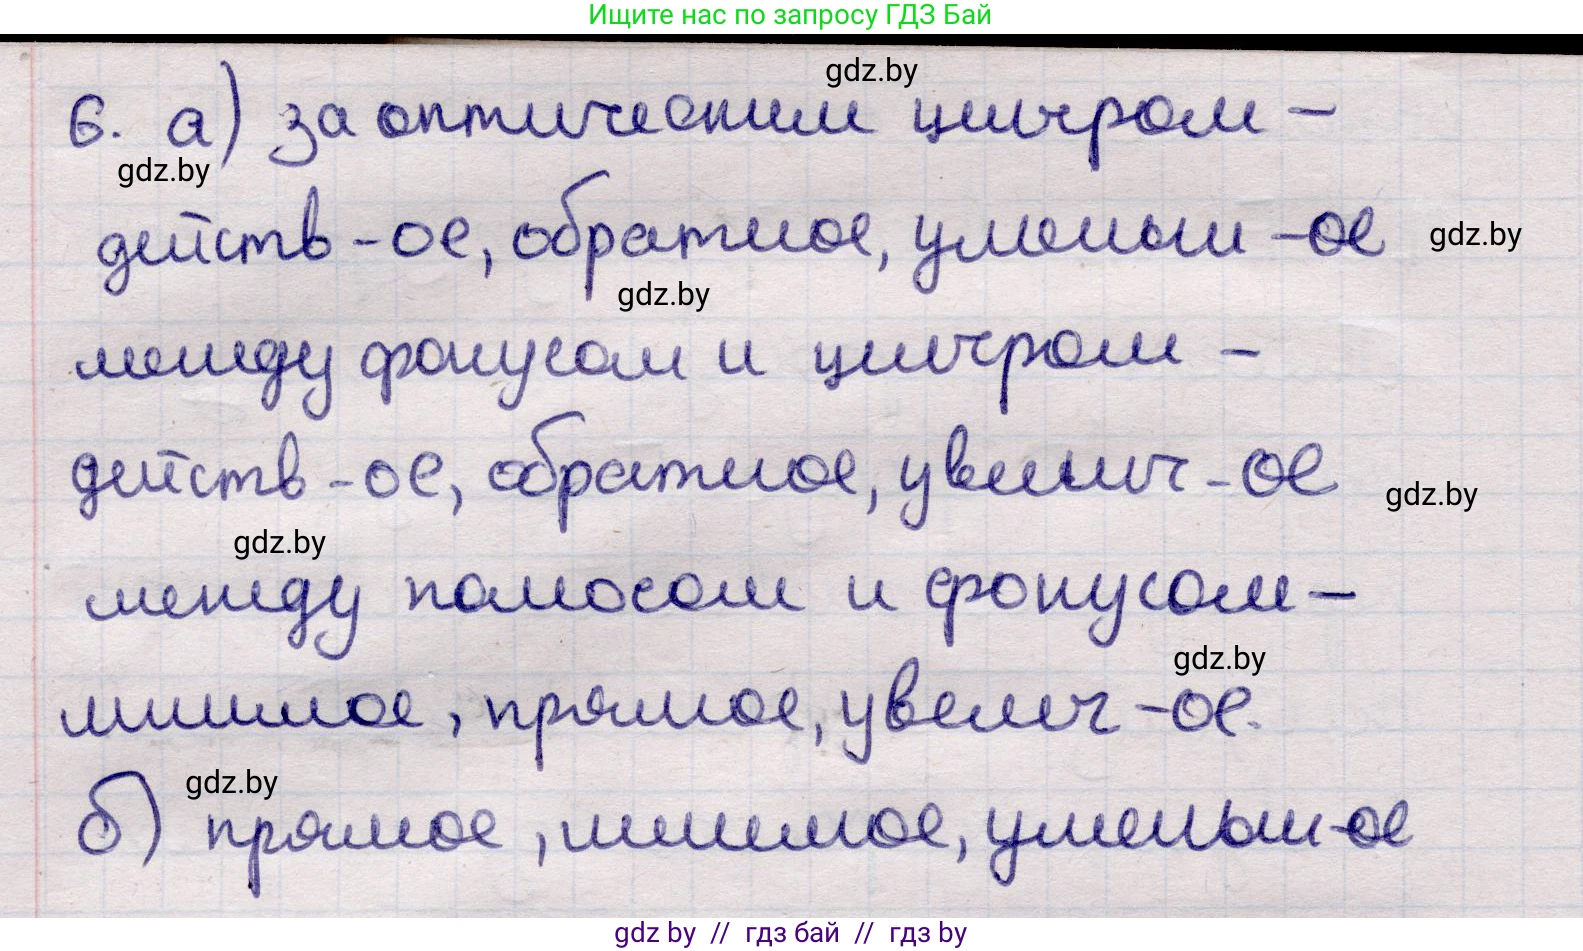 Ищите нас по запросу ГДЗ Бай
gdz.by
6. а) за оптическим центром –
gdz.by
действ-ое, обратное, уменьш-ое
gdz.by
gdz.by
между фокусом и центром –
действ-ое, обратное, увелич-ое
gdz.by
gdz.by
между полюсом и фокусом –
gdz.by
мнимое, прямое, увелич-ое.
gdz.by
б) прямое, мнимое, уменьш-ое
gdz by // гдз бай // гдз by